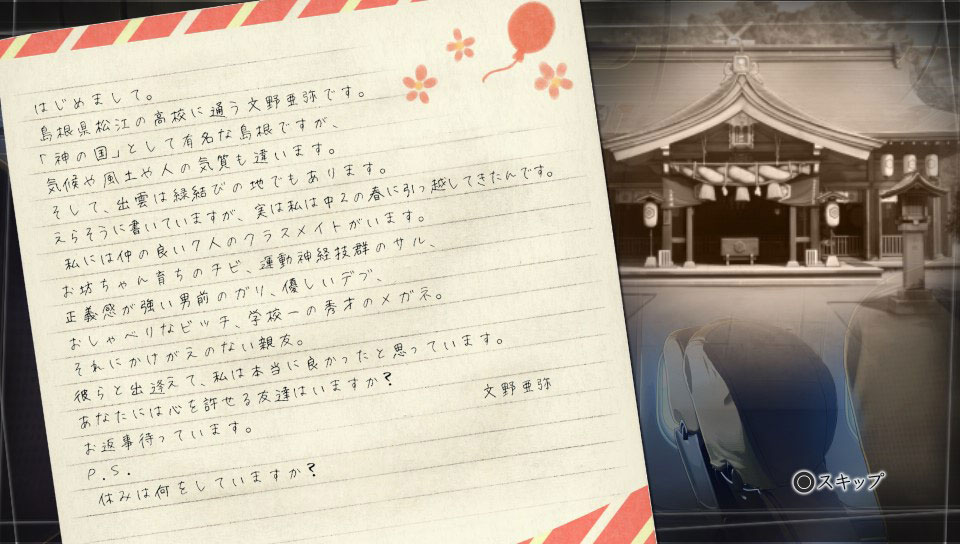 はじめまして。
島根県松江の高校に通う文野亜弥です。
「神の国」として有名な島根ですが、
気候や風土や人の気質も違います。
そして、出雲は縁結びの地でもあります。
えらそうに書いていますが、実は私は中2の春に引っ越してきたんです。
私には仲の良い7人のクラスメイトがいます。
お坊ちゃん育ちのチビ、運動神経抜群のサル、
正義感が強い男前のガリ、優しいデブ、
おしゃべりなビッチ、学校一の秀才のメガネ。
それにかけがえのない親友。
彼らと出逢えて、私は本当に良かったと思っています。
あなたには心を許せる友達はいますか?
お返事待っています。
文野亜弥
P.S.
休みは何をしていますか?
○スキップ